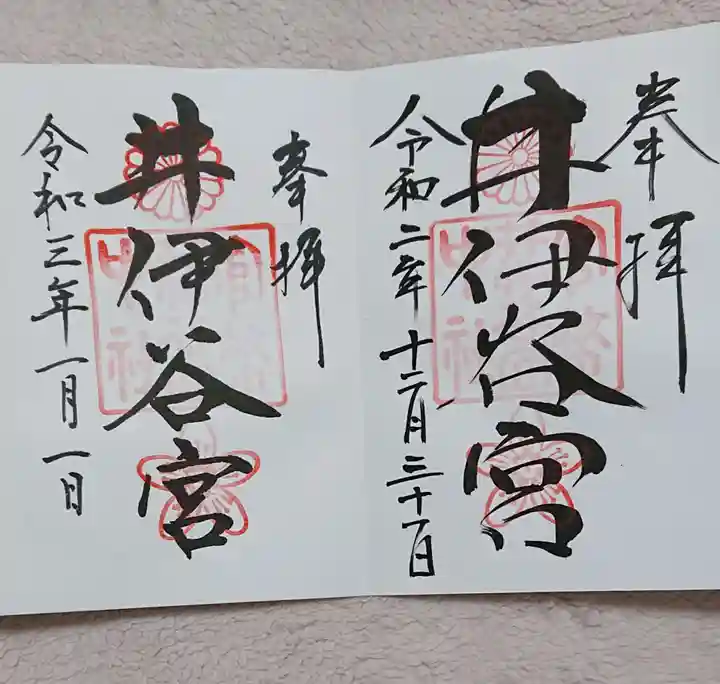 奉拝
井伊谷宮
令和二年十二月三十一日
奉拝
井伊谷宮
令和三年一月一日